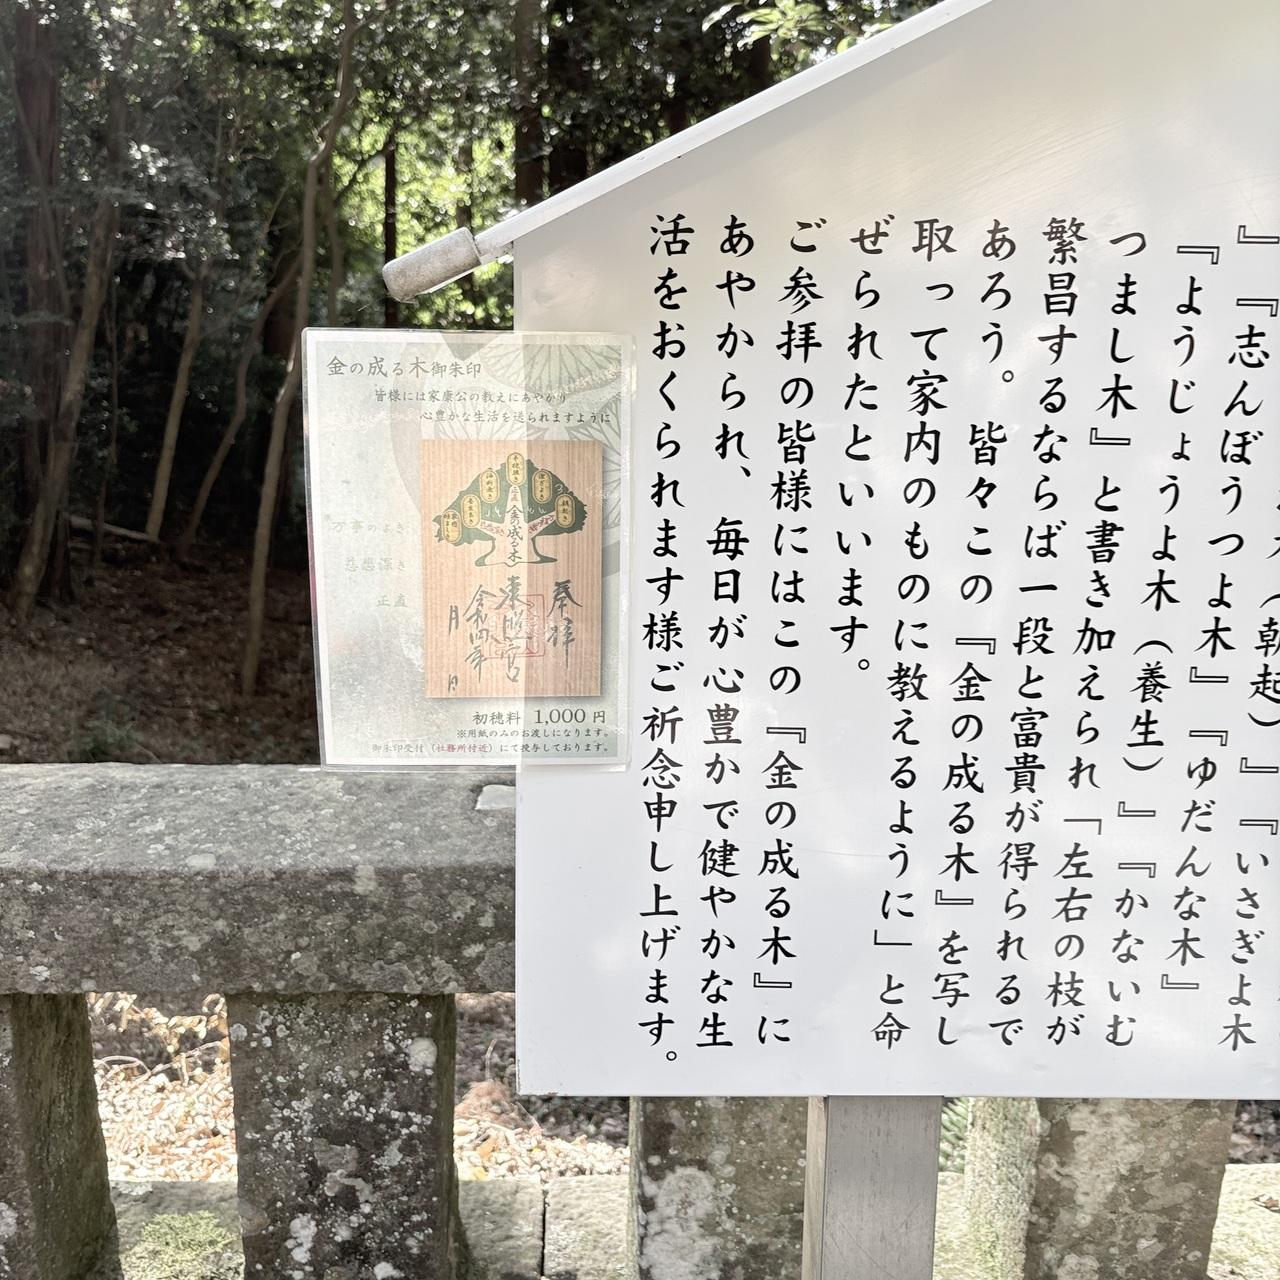 』『志んぼうつよ木（朝起）』『いさぎよ木
『ようじょうよ木（養生）』『かないむ
つまし木』と書き加えられ「左右の枝が
繁昌するならば一段と富貴が得られるで
あろう。皆々この『金の成る木』を写し
取って家内のものに教えるように」と命
ぜられたといいます。
ご参拝の皆様にはこの『金の成る木』に
あやかられ、毎日が心豊かで健やかな生
活をおくられます様ご祈念申し上げます。
金の成る木御朱印
皆様には家康公の教えにあやかり
心豊かな生活を送られますように
万事のよき
慈悲深き
正直
金の成る木
奉拝
東照宮
令和四年
月 日
初穂料 1,000 円
※用紙のみのお渡しになります。
御朱印受付（社務所付近）にて授与しております。